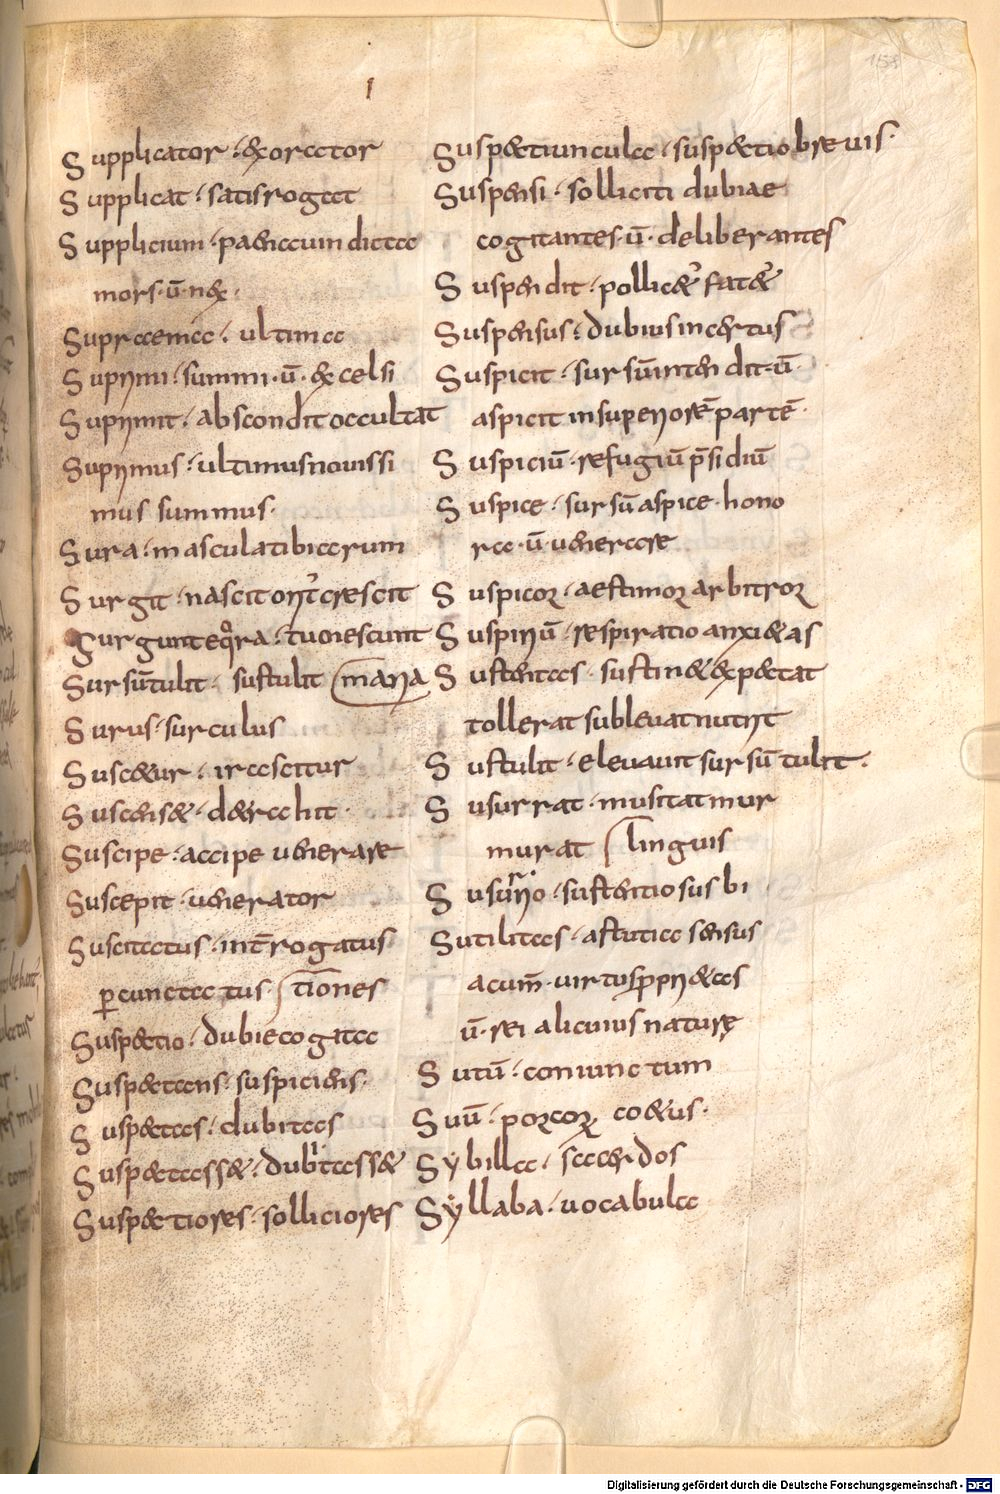 158
Supplicator · & orator
Supplicat · satis rogat
Supplicium · pa& iacum dicta
mors · ū · nex ·
Supraema · ultima
Suprimi · summi · ū · & celsi
Suprimit · abscondit occultat
Suprimus · ultimus nouissi
mus summus ·
Sura · mascula tibiarum
Surgit · nascit orit' crescit
Surgunt eqͦra · tumescunt
Sursū tulit · sustulit
Surus · surculus maria
Sus&ur · irascitur
Suscens& · d&rahit ·
Suscipe · accipe uenerare
Suscepit · uenerator
Suscitatus · introgatus
ꝑcunctatus tiones
Susp&io · dubie cogita
Susp&tans · suspiciens ·
Susp&as · dubitas
Susp&ass& · dubitass&
Susp&iores · solliciores
Susp&iuncula · susp&io breuis ·
Suspensi · solliciti dubiae
cogitantes · ū · deliberantes
Suspendit · pollic&' fat&'
Suspensus · dubius incertus
Suspicit · sursū intendit · ū ·
aspicit in superiorē partē ·
Suspiciū · refugiū p̄sidiū
Suspice · sursū aspice · hono
ra · ū · uenerare
Suspicor · aestimor arbitror
Suspiriū · respiratio anxi&as
Sustentas · sustin& & p&at
tollerat subleuat nutrit
Sustulit · eleuauit sursū tulit ·
Susurrat · musitat mur
murat linguis
Susurrio · sustentio sus bi
Sutilitas · astutia sensus
acum̄ · uirtus propri&as
ū · rei alicuius naturę
Sutū · coniunctum
Suū · porcor co&us ·
Sybilla · sacerdos
Syllaba · uocabula
Digitalisierung gefördert durch die Deutsche Forschungsgemeinschaft - DFG